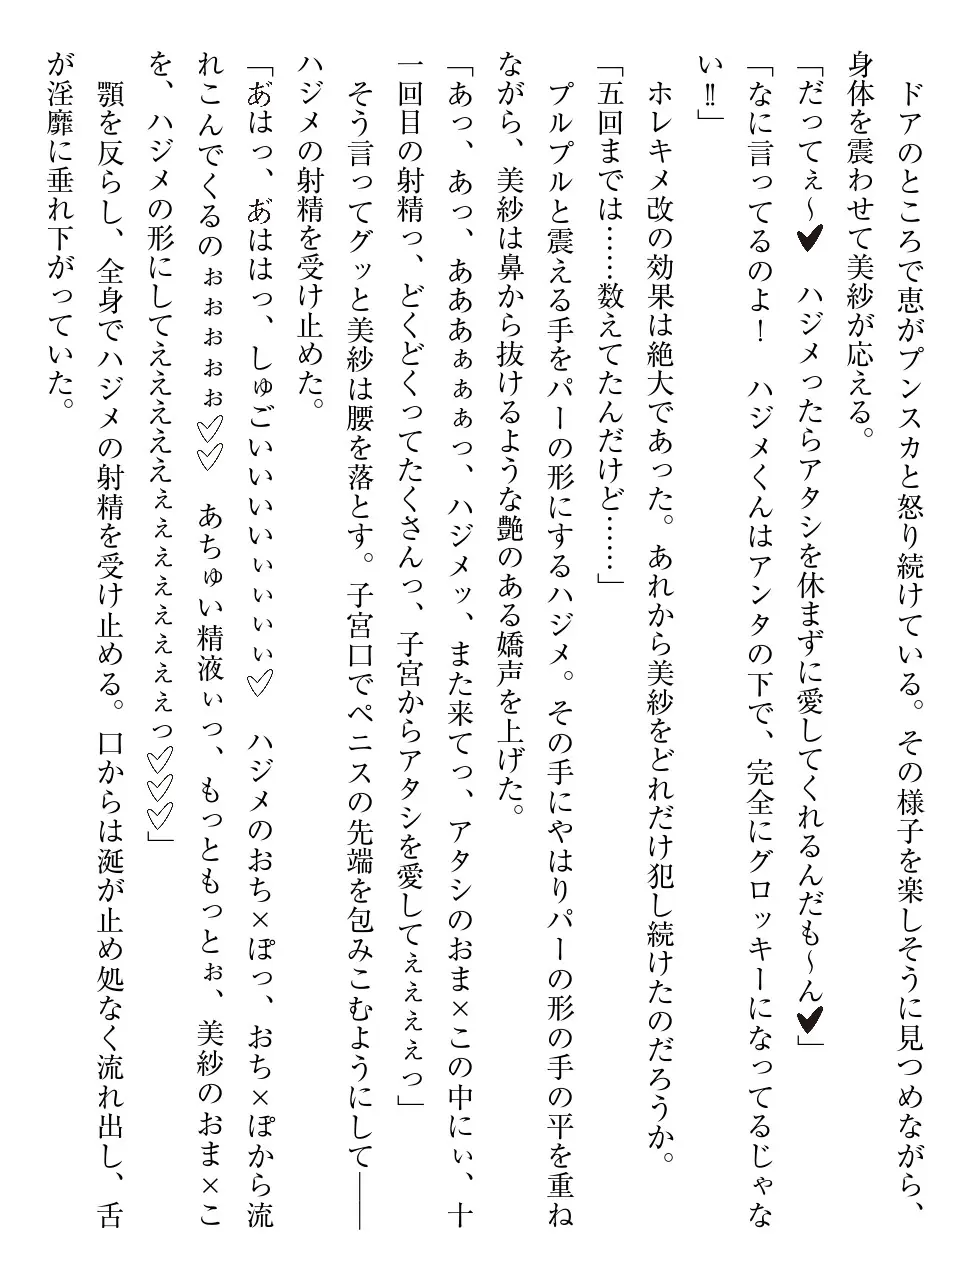 ドアのところで恵がプンスカと怒り続けている。その様子を楽しそうに見つめながら、
身体を震わせて美紗が応える。
「だってぇ～♥　ハジメったらアタシを休まずに愛してくれるんだも～ん♥」
「なに言ってるのよ！　ハジメくんはアンタの下で、完全にグロッキーになってるじゃな
い‼」
　ホレキメ改の効果は絶大であった。あれから美紗をどれだけ犯し続けたのだろうか。
「五回までは……数えてたんだけど……」
　プルプルと震える手をパーの形にするハジメ。その手にやはりパーの形の手の平を重ね
ながら、美紗は鼻から抜けるような艶のある嬌声を上げた。
「あっ、あっ、あああぁぁぁっ、ハジメッ、また来てっ、アタシのおま×この中にぃ、十
一回目の射精っ、どくどくってたくさんっ、子宮からアタシを愛してぇぇぇぇっ」
　そう言ってグッと美紗は腰を落とす。子宮口でペニスの先端を包みこむようにして――
ハジメの射精を受け止めた。
「あ゛はっ、あ゛ははっ、しゅごいいいいぃぃぃぃ♡　ハジメのおち×ぽっ、おち×ぽから流
れこんでくるのぉぉぉぉぉ♡♡　あちゅい精液ぃっ、もっともっとぉ、美紗のおま×こ
を、ハジメの形にしてえええええぇぇぇぇぇぇぇっ♡♡♡」
　顎を反らし、全身でハジメの射精を受け止める。口からは涎が止め処なく流れ出し、舌
が淫靡に垂れ下がっていた。